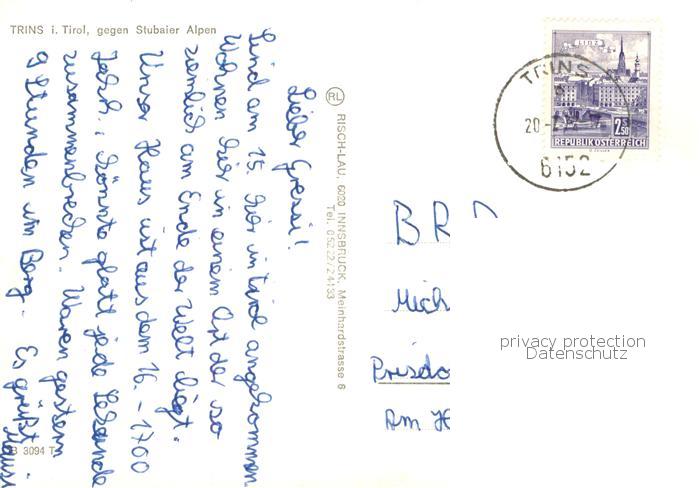 TRINS i. Tirol, gegen Stubaier Alpen
Lieber Gressi!
Sind am 15. hier in Tirol angekommen
Wohnen hier in einem Ort der so
ziemlich am Ende der Welt liegt.
Unser Haus ist aus dem 16. - 1700
Jahrh., könnte glatt jede Sekunde
zusammenbrechen. Waren gestern
9 Stunden im Berg. Es grüßt
B 3094 T
RL RISCH-LAU, 6020 INNSBRUCK, Meinhardstrasse 6
Tel. 05222/24133
LINZ
2 S 50
REPUBLIK ÖSTERREICH
TRINS
20.-
6152
BR
Mich
Prisdo
Am
privacy protection
Datenschutz